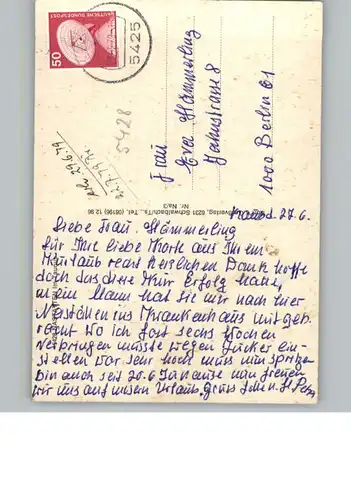 50
DEUTSCHE BUNDESPOST
5425
5428
Frau
Eva Hämmerling
Jahnstrasse 8
1000 Berlin 61
verlag, 6231 Schwalbach/Ts., Tel. (06196) 12 96
Nr. Na/3
d. 27.6.
Liebe Frau Hämmerling
für Ihre liebe Karte aus Ihrem
Urlaub recht herzlichen Dank hoffe
doch das diese Kur Erfolg hatte,
mein Mann hat sie mir nach hier
Nastätten ins Krankenhaus mit geb
racht wo ich fast sechs Wochen
verbringen musste wegen Zucker ein-
stellen war sehr hoch muss nun spritzen
bin auch seit 20.6 zu Hause nun freuen
wir uns auf unsern Urlaub, gruss